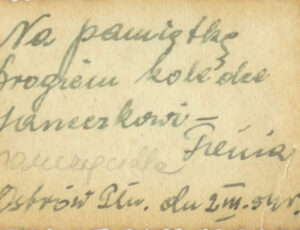 Na pamiątkę
Drogiem koledze
Janeczkowi –
Frenia
Ostrów Tłu. dn 2 III. 54r.